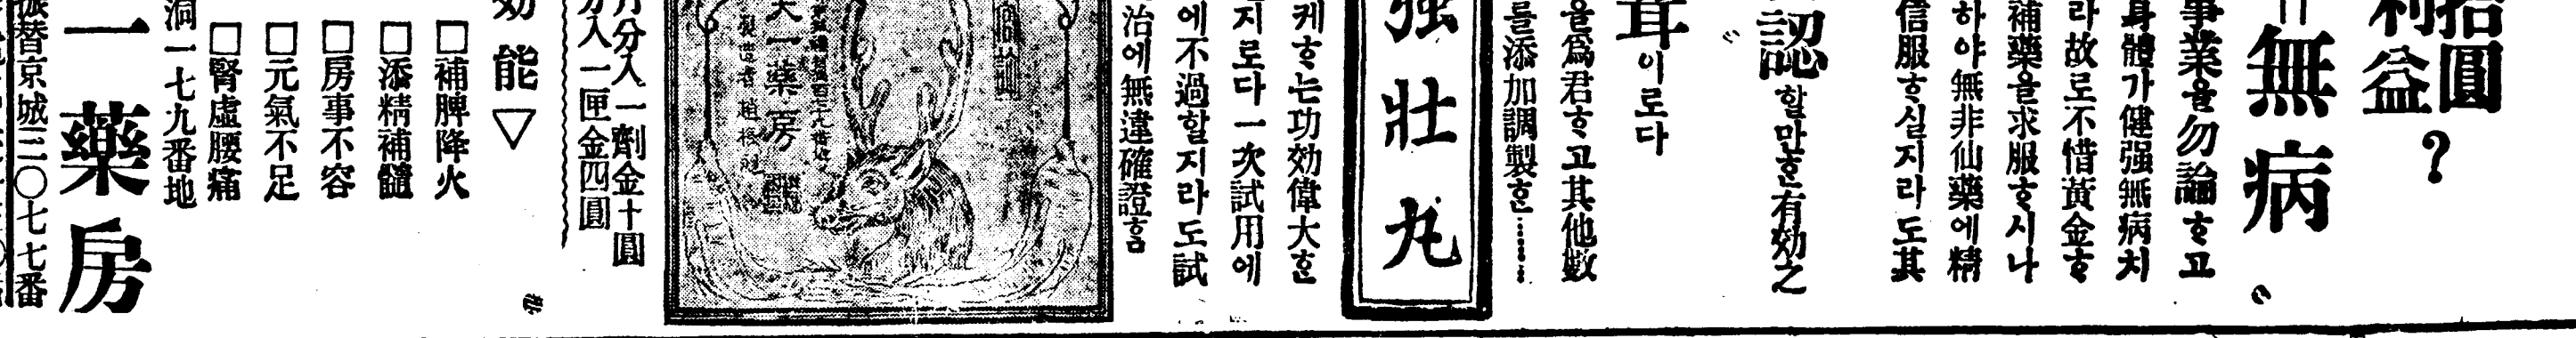 拾圓
利益?
=無病
事業을勿論ᄒᆞ고
身體가健强無病치
라故로不惜黃金ᄒᆞ
補藥을求服ᄒᆞ시나
하야無非仙藥에精
信服ᄒᆞ실지라도其
認할만ᄒᆞᆫ有効之
茸이로다
을爲君ᄒᆞ고其他數
를添加調製ᄒᆞᆫ……
强壯丸
케ᄒᆞ는功効偉大ᄒᆞᆫ
지로다一次試用에
에不過할지라도試
治에無違確證홈
天一藥房
製造者
月分入一劑金十圓
分入一匣金四圓
効能▽
□補脾降火
□添精補髓
□房事不容
□元氣不足
□腎虛腰痛
洞一七九番地
一藥房
振替京城三〇七七番